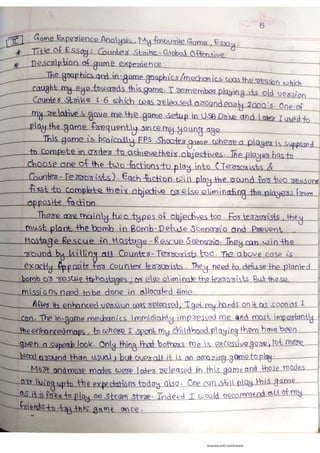 5
Game Experience Analysis, My favourite Game, Essay:
* Title Of Essay: Counter Strike - Global Offensive
* Description of game experience:
The graphics and in-game graphics/mechanics was the reason which
caught my eye towards this game. I remember playing its old version
Counter Strike 1.6 which was released around early 2000's. One of
my relative's gave me the game setup in USB Drive and later I used to
play the game frequently since my young age.
This game is basically FPS Shooter game where a player is supposed
to compete in order to achieve their objectives. The player has to
choose one of the two factions to play into (Terrorists &
Counter-Terrorists). Each faction will play the round for two reasons
first to complete their objective or else eliminating the players from
opposite faction
There are mainly two types of objectives too. For terrorists, they
must plant the bomb in Bomb-Defuse Scenario and Prevent
Hostage Rescue in Hostage-Rescue Scenario. They can win the
round by killing all Counter-Terrorists too. The above case is
exactly opposite for counter terrorists. They need to defuse the planted
bomb or rescue hostages, or else eliminate the terrorists. But these
missions need to be done in allocated time.
After its enhanced version was released, I got my hands on it as soon as I
can. The in-game mechanics immidiatly impressed me and most importantly
the enhanced maps, to where I spent my childhood playing them have been
given a superb look. Only thing that bothers me is excessive gore, lot more
blood around than usual, but overall it is an amazing game to play.
More and more modes were later released in this game and those modes
are living upto the expectations today also. One can still play this game
as it is free to play on Steam store. Indeed I would recommend all of my
friends to try this game once.
Scanned with CamScanner